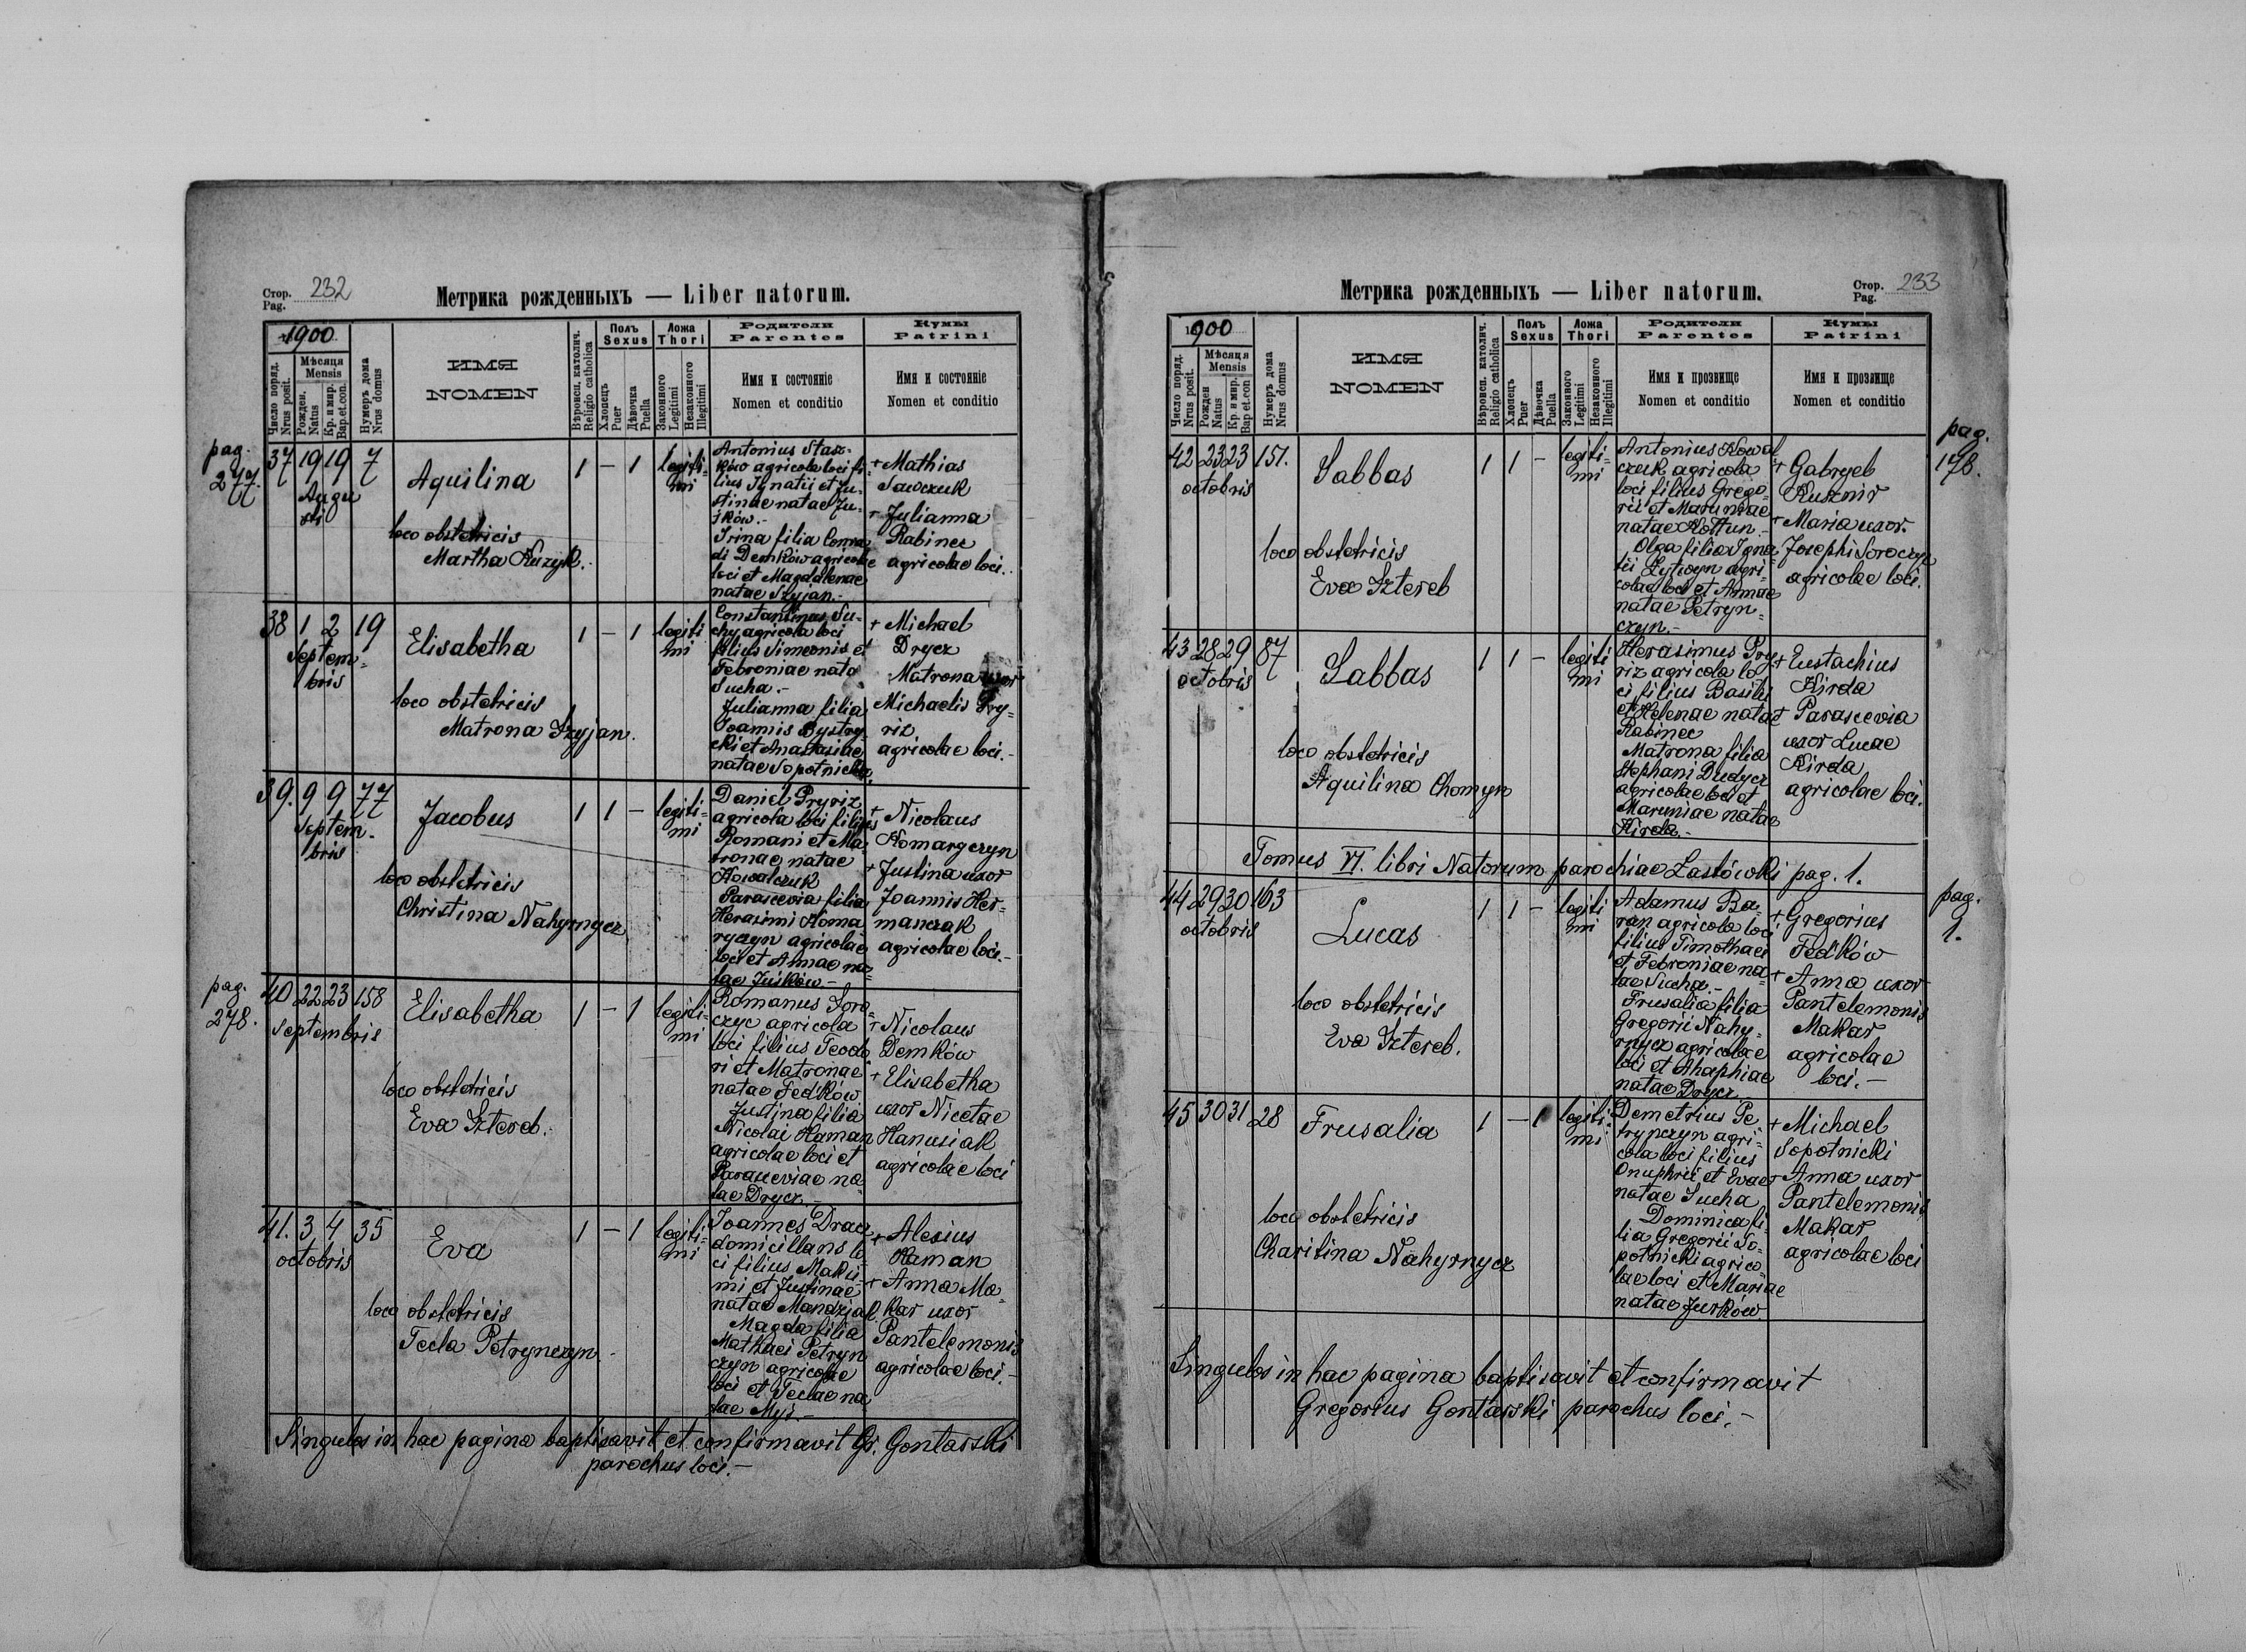 Стор. Pag. 232
Метрика рожденныхъ — Liber natorum.
1900
Число поряд. Nrus posit.
Мѣсяця Mensis
Рожден. Natus
Кр. и мир. Bap. et con.
Нумеръ дома Nrus domus
ИМЯ
NOMEN
Вѣроисп. католич. Religio catholica
Полъ Sexus
Хлопецъ Puer
Дѣвочка Puella
Ложа Thori
Законного Legitimi
Незаконного Illegitimi
Родители Parentes
Имя и состоянiе
Nomen et conditio
Кумы Patrini
Имя и состоянiе
Nomen et conditio
pag. 277.
37 19 19 7
Augusti
Aquilina
loco obstetricis
Martha Kuzyk.
1 — 1 legiti=
mi
Antonius Stasz=
ków agricola loci fi=
lius Ignatii et Ju=
stinae natae Ju=
śków.-
Irina filia Conra
di Demków agricolae
loci et Magdalenae
natae Szyjan.-
+ Mathias
Sawczuk
+ Julianna
Rabinec
agricolae loci.
38 1 2 19
Septem=
bris
Elisabetha
loco obstetricis
Matrona Szyjan.
1 — 1 legiti
mi
Constantinus Su=
chy agricola loci
filius Simeonis et
Febroniae nata
Sucha.-
Julianna filia
Joannis Bystry=
cki et Anastasiae
natae Sopotnicka.
+ Michael
Drycz
Matrona uxor
Michaelis Pry=
riz
agricolae loci.-
39. 9 9 77
Septem=
bris
Jacobus
loco obstetricis
Christina Nahyrnycz
1 1 — legiti=
mi
Daniel Pryriz
agricola loci filius
Romani et Ma
tronae natae
Kowalczuk
Parascevia filia
Herasimi Koma
ryczyn agricolae
loci et Annae na=
tae Juśków.-
+ Nicolaus
Komaryczyn
+ Justina uxor
Joannis Her=
manczak
agricolae loci.-
pag. 278.
40 22 23 158
Septembris
Elisabetha
loco obstetricis
Eva Sztereb.
1 — 1 legiti=
mi
Romanus Soro=
czyc agricola
loci filius Teodo
ri et Matronae
natae Fedków
Justina filia
Nicolai Haman
agricolae loci et
Parasceviae na
tae Drycz.-
+ Nicolaus
Demków
+ Elisabetha
uxor Nicetae
Hanusiak
agricolae loci
41. 3 4 35
octobris
Eva
loco obstetricis
Tecla Petrynczyn.
1 — 1 legiti=
mi
Joannes Dracz
domicillans lo
ci filius Maksi
mi et Justinae
natae Mandziak.
Magda filia
Mathaei Petryn
czyn agricolae
loci et Teclae na
tae Myś.-
+ Alexius
Haman
+ Anna Ma=
kar uxor
Pantelemonis
agricolae loci.-
Singulos in hac pagina baptisavit et confirmavit Gr. Gontarski
parochus loci.-
Метрика рожденныхъ — Liber natorum.
Стор. Pag. 233
1900
Число поряд. Nrus posit.
Мѣсяця Mensis
Рожден Natus
Кр. и мир. Bap et con
Нумеръ дома Nrus domus
ИМЯ
NOMEN
Вѣроисп. католич. Religio catholica
Полъ Sexus
Хлопецъ Puer
Дѣвочка Puella
Ложа Thori
Законного Legitimi
Незаконного Illegitimi
Родители Parentes
Имя и прозвище
Nomen et conditio
Кумы Patrini
Имя и прозвище
Nomen et conditio
pag. 178.
42 23 23 151.
octobris
Sabbas
loco obstetricis
Eva Sztereb
1 1 — legiti=
mi
Antonius Kowal
czuk agricola
loci filius Grego=
rii et Maruniae
natae Kottun.-
Olga filia Igna
tii Lytwyn agri=
colae loci et Annae
natae Petryn=
czyn.-
+ Gabryel
Kusznir
+ Maria uxor
Josephi Soroczyc
agricolae loci.
43 28 29 87
octobris
Sabbas
loco obstetricis
Aquilina Chomyn
1 1 — legiti
mi
Herasimus Pry
riz agricola lo
ci filius Basilii
et Helenae natae
Rabinec
Matrona filia
Stephani Dudycz
agricolae loci et
Maruniae natae
Kirda.-
+ Eustachius
Kirda
+ Parascevia
uxor Lucae
Kirda
agricolae loci.
Tomus VI. libri Natorum parochiae Lastówki pag. 1.
pag. 1.
44 29 30 163
octobris
Lucas
loco obstetricis
Eva Sztereb.
1 1 — legiti
mi
Adamus Ba=
ran agricola loci
filius Timothaei
et Febroniae na=
tae Sucha.-
Frusalia filia
Gregorii Nahy=
rnycz agricolae
loci et Ahaphiae
natae Drycz
+ Gregorius
Fedków
+ Anna uxor
Pantelemonis
Makar
agricolae
loci.-
45 30 31 28
Frusalia
loco obstetricis
Charitina Nahyrnycz
1 — 1 legiti=
mi
Demetrius Pe
trynczyn agri=
cola loci filius
Onuphrii et Evae
natae Sucha
Dominica fi=
lia Gregorii So=
potnicki agrico
lae loci et Mariae
natae Jurków.
+ Michael
Sopotnicki
+ Anna uxor
Pantelemonis
Makar
agricolae loci
Singulos in hac pagina baptisavit et confirmavit
Gregorius Gontarski parochus loci.-